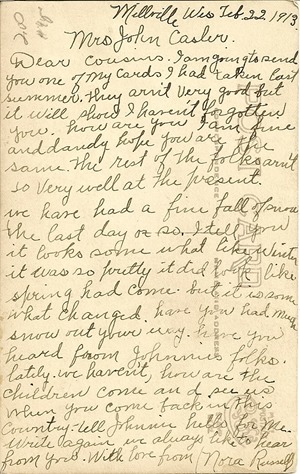 Millville Wis Feb. 22 1913.
Mrs John Casler.
Dear cousins. I am going to send
you one of my cards I had taken last
summer. They arn't very good but
it will show I haven't forgotten
you. how are you I am fine
and dandy hope you are the
same. The rest of the folks arn't
so very well at the present.
we have had a fine fall of snow
the last day or so. I tell you
it looks some what like winter
it was so pretty it did look like
spring had come. but it is some
what changed. have you had much
snow out your way. have you
heard from Johnnies folks.
lately. we haven't, how are the
children come and see us
when you come back in this
Country. tell Johnnie hello for me.
Write again we always like to hear
from you. With love from Nora Russell